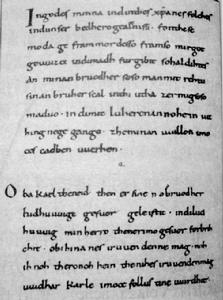 In godes minna ind inthes xpanes folches
ind unser bedhero gealtnissi. fonthese
moda ge frammordesso framso mirgot
geuuizci indi madh furgibit sohaldihtes
an minan bruodher soso manmit rehtu
sinan bruher scal inthi utha zermigsoso
maduo. indimit luheren innohein iut
hing nege gango. theminan uuillon imo
ces cadhen uuerhen.
Oba Karl then eid then er sine nobruodher
ludhuuuige gesuor geleistit. indilud
huuuig min herro thenerimo gesuor forbrih
chit. obihina nes iruuenden nemag. noh
ih noh thero noh hein thenihes iruuendenmag
uuidhar Karle imoce follusti ne uuirdhit